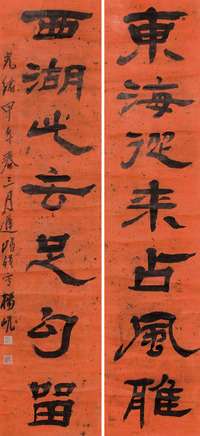 東海從来占風雅
西湖此去足勾留
光緒甲午春三月